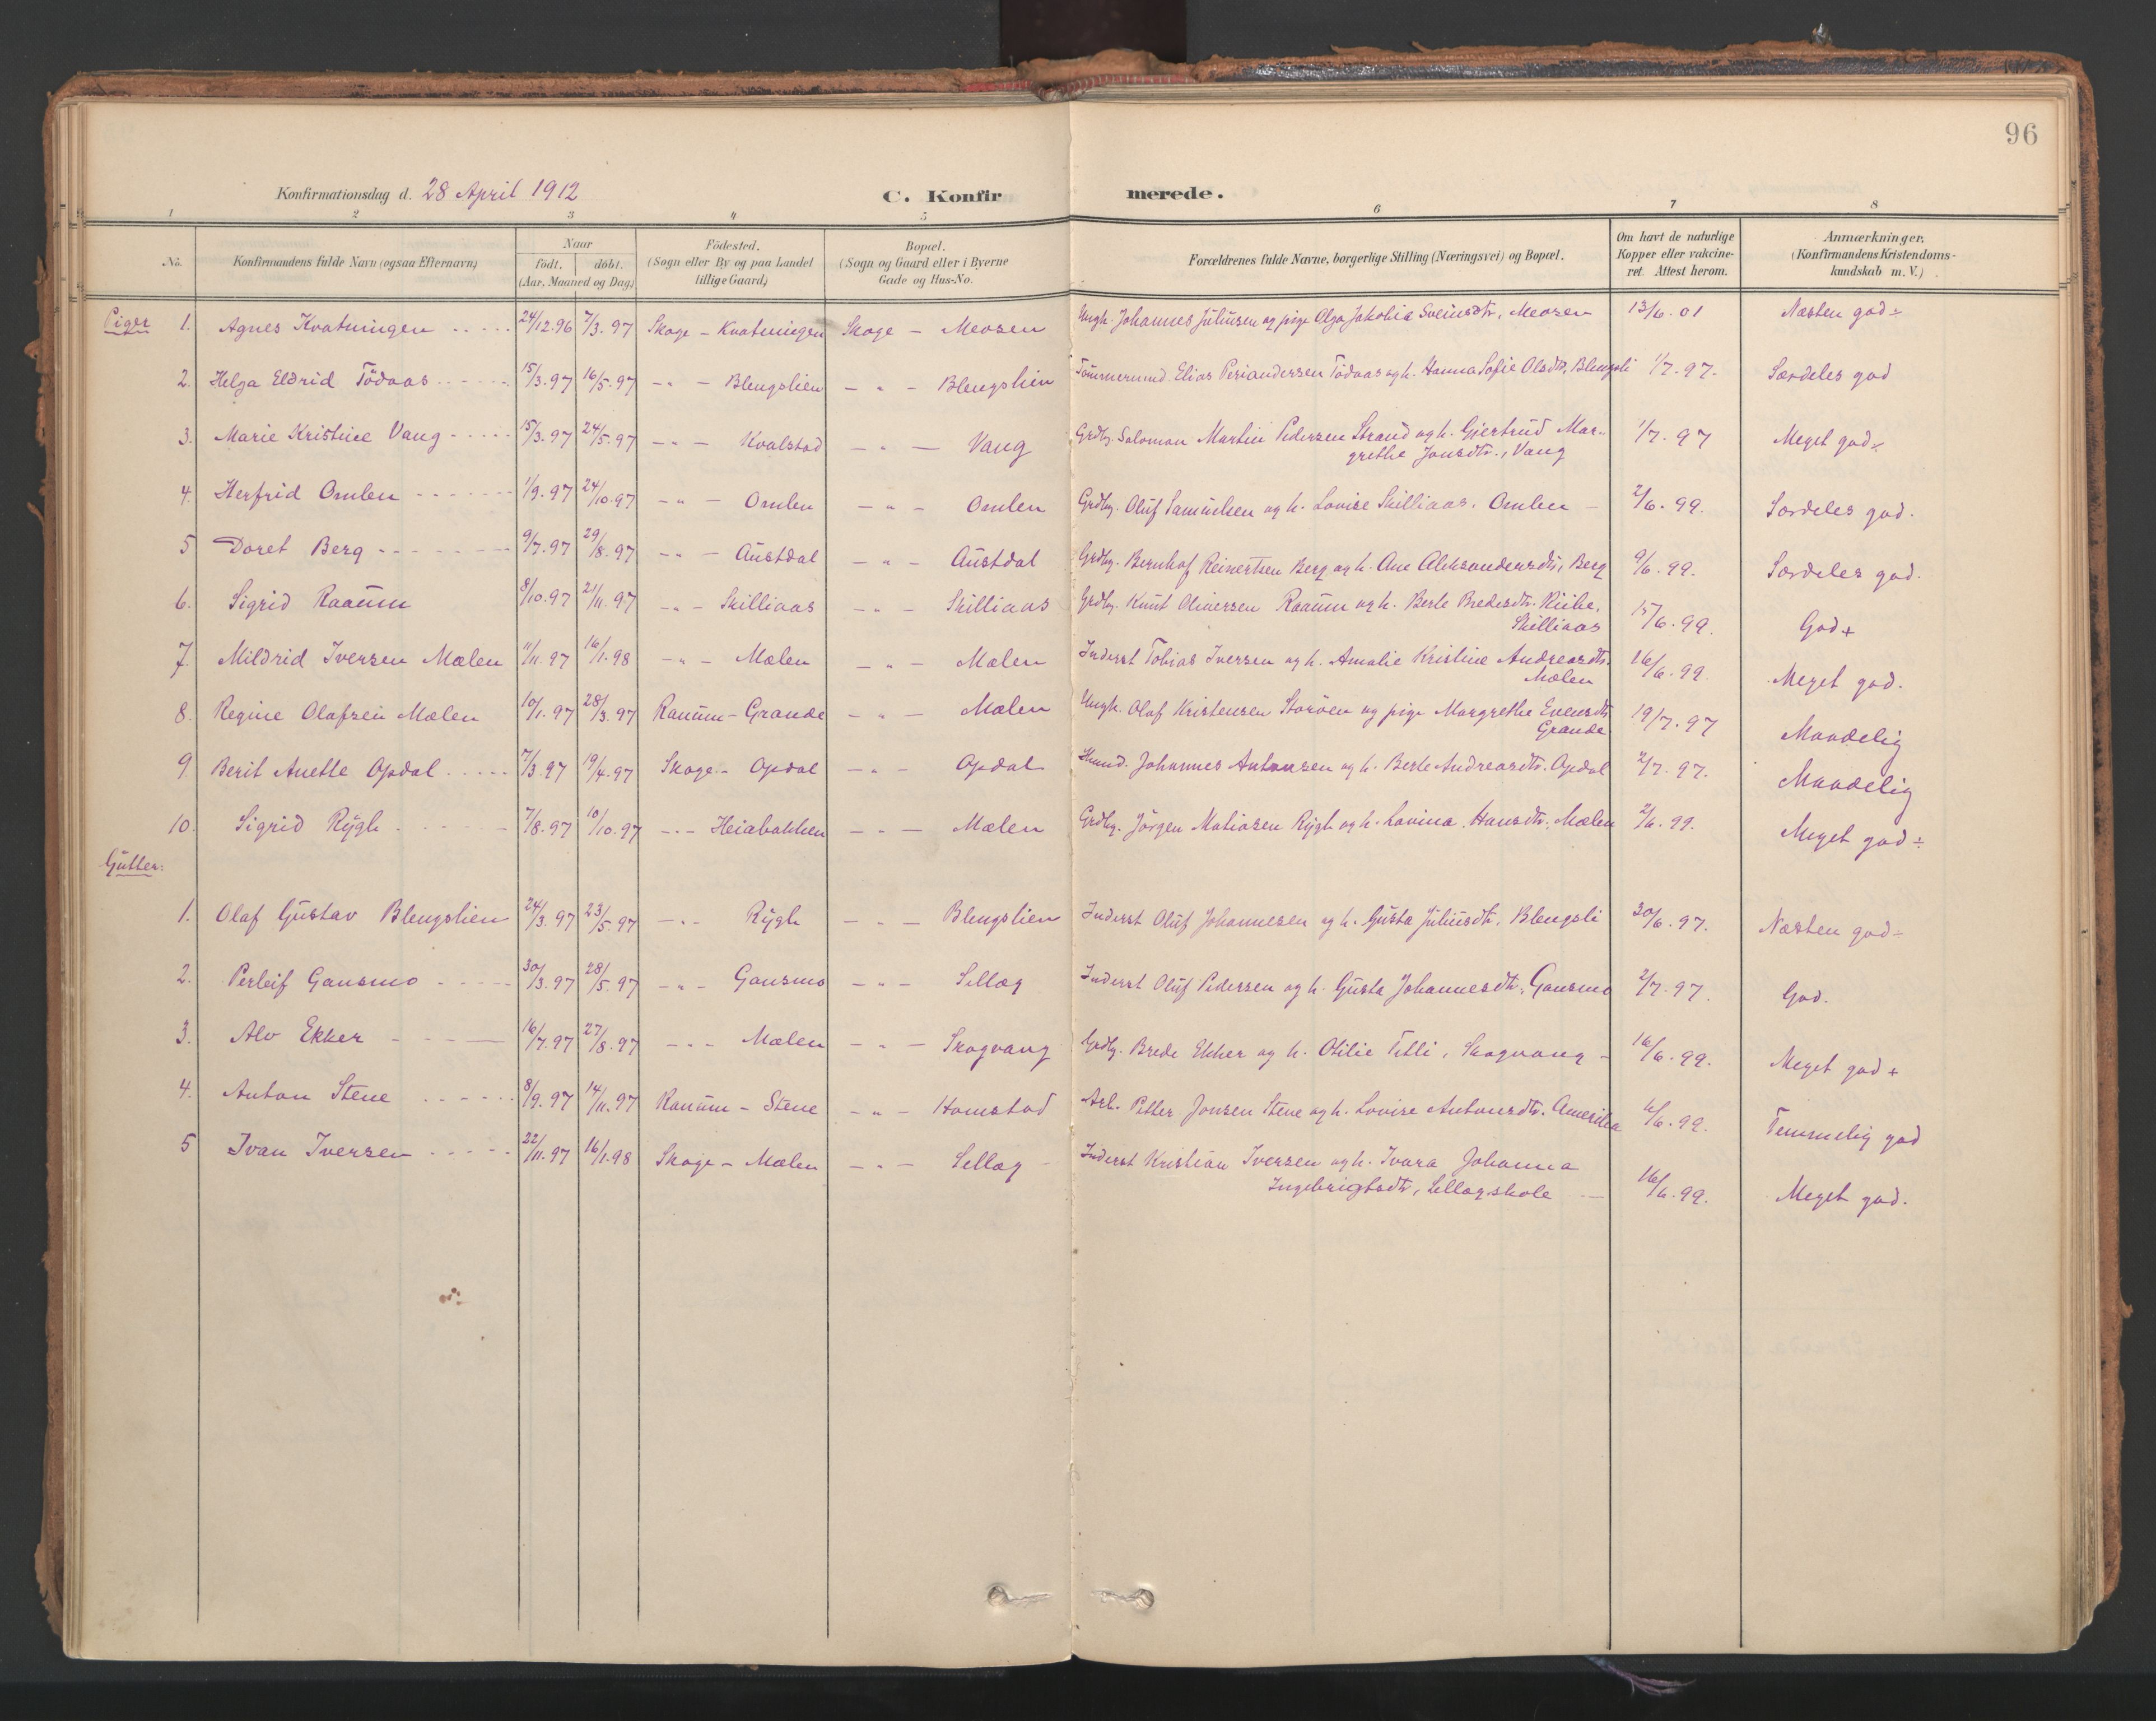 96
Konfirmationsdag d. 28 April 1912 C. Konfirmerede.
1 2 3 4 5 6 7 8
No. Konfirmandens fulde Navn (ogsaa Efternavn) Naar født. døbt. (Aar, Maaned og Dag) Fødested. (Sogn eller By og paa Landet tillige Gaard) Bopæl. (Sogn og Gaard eller i Byerne Gade og Hus-No. Forældrenes fulde Navne, borgerlige Stilling (Næringsvei) og Bopæl. Om havt de naturlige Kopper eller vakcineret. Attest herom. Anmærkninger. (Konfirmandens Kristendomskundskab m. V.)
Piger 1. Agnes Kvatningen 24/12.96 7/3.97 Skage - Kvatningen Skage - Meosen Ungk. Johannes Juliusen og pige Olga Jakobia Sveinsdtr, Meosen 13/6.01 Næsten god ÷
2. Helga Eldrid Tödaas 15/3.97 16/5.97 - " - Blengslien - " - Blengslien Tömmermd. Elias Periandersen Tödaas og h. Hanna Sofie Olsdtr, Blengsli 1/7.97. Særdeles god
3. Marie Kristine Vang 15/3.97 24/5.97 - " - Kvalstad - " - Vang Grdbg. Salomon Martin Pedersen Strand og h. Gjertrud Mar-
grethe Jonsdtr., Vang 1/7.97 Meget god ÷
4. Herfrid Omlen 1/9.97 24/10.97 - " - Omlen - " - Omlen Grdbg. Oluf Samuelsen og h. Lovise Skilliaas, Omlen - 2/6.99. Særdeles god.
5 Doret Berg 9/7.97 29/8.97 - " - Austdal - " - Austdal Grdbg. Bernhof Reinertsen Berg og h. Ane Aleksandersdtr, Berg 9/6.99. Særdeles god.
6. Sigrid Raaum 8/10.97 21/11.97 - " - Skilliaas - " - Skilliaas Grdbg. Knut Oliversen Raaum og h. Berle Bredesdtr.
Skilliaas 15/6.99. God +
7. Mildrid Iversen Mælen 11/11.97 16/1.98 - " - Mælen - " - Mælen Inderst Tobias Iversen og h. Amalie Kristine Andreasdtr.
Mælen 16/6.99. Meget god.
8. Regine Olafsen Mælen 10/1.97 28/3.97 Ranum - Grande - " - Mælen Ungk. Olaf Kristensen Storöen og pige Margrethe Evensdtr
Grande 19/7.97 Maadelig
9 Berit Anette Opdal 7/3.97 19/4.97 Skage - Opdal - " - Opdal Husmd. Johannes Antonsen og h. Berle Andreasdtr. Opdal 2/7.97. Maadelig
10. Sigrid Rygh 7/8.97 10/10.97 - " - Heiabakken - " - Mælen Grdbg. Jörgen Matiasen Rygh og h. Lovina Hansdtr, Mælen 2/6.99. Meget god ÷
Gutter:
1. Olaf Gustav Blengslien 24/3.97 23/5.97 - " - Rygh - " - Blengslien Inderst Oluf Johannesen og h. Gusta Juliusdtr, Blengsli 30/6.97. Næsten god ÷
2. Perleif Gansmo 30/3.97 28/5.97 - " - Gansmo - " - Sellæg Inderst Oluf Pedersen og h. Gusta Johannesdtr, Gansmo 2/7.97. God.
3. Alv Ekker 16/7.97 27/8.97 - " - Mælen - " - Skogvang Grdbg. Brede Ekker og h. Otilie Tetli, Skogvang - 16/6.99. Meget god +
4. Anton Stene 8/9.97 14/11.97 Ranum - Stene - " - Homstad Arb. Petter Jonsen Stene og h. Lovise Antonsdtr. Amerika /6.99. Temmelig god
5 Ivan Iversen 22/11.97 16/1.98 Skage - Mælen - " - Sellæg Inderst Kristian Iversen og h. Ivara Johanna
Ingebrigtsdtr, Sellægskole - 16/6.99. Meget god.